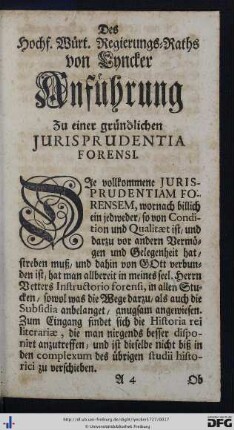 Des
Hochf. Würt. Regierungs-Raths
von Lyncker
Anführung
Zu einer gründlichen
JURISPRUDENTIA
FORENSI.
DIe vollkommene JURIS-
PRUDENTIAM FO-
RENSEM, wornach billich
ein jedweder, so von Condi-
tion und Qualitæt ist, und
darzu vor andern Vermö-
gen und Gelegenheit hat,
streben muß, und dahin von GOtt verbun-
den ist, hat man allbereit in meines seel. Herrn
Vetters Instructorio forensi, in allen Stu-
cken, sowol was die Wege darzu, als auch die
Subsidia anbelanget, gnugsam angewiesen.
Zum Eingang findet sich die Historia rei
literariæ, die man nirgends besser dispo-
nirt anzutreffen, und ist dieselbe nicht biß in
den complexum des übrigen studii histo-
rici zu verschieben.
A 4 Ob
http://dl.ub.uni-freiburg.de/diglit/lyncker1727/0017
© Universitätsbibliothek Freiburg
gefördert durch
DFG